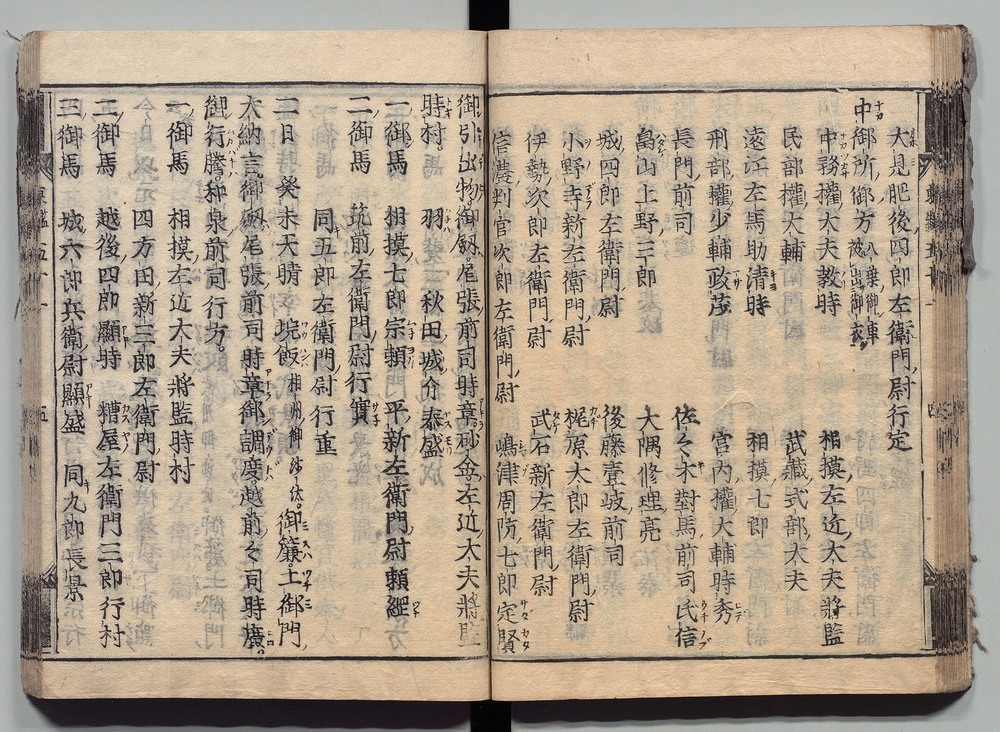 大見肥後四郎左衛門尉行定
中御所御方 入乗御車 被出御衣
中務權大夫敎時 相摸左近大夫將監
民部權大輔 武藏式部大夫
遠江左馬助清時 相摸七郎
刑部權少輔政茂 宮内權大輔時秀
長門前司 佐々木對馬前司氏信
畠山上野三郎 大隅修理亮
城四郎左衛門尉 後藤壹岐前司
小野寺新左衛門尉 梶原太郎左衛門尉
伊勢次郎左衛門尉 武石新左衛門尉
信濃判官次郎左衛門尉 嶋津周防七郎定賢
御引出物御釼尾張前司時章砂金左近大夫將監
時村 羽 秋田城介泰盛
一御馬 相摸七郎宗頼 平新左衛門尉頼經
二御馬 筑前左衛門尉行實
同五郎左衛門尉行重
二日癸未天晴 垸飯 相州御沙汰 御簾土御門
大納言御釼尾張前司時章御調度越前々司時廣
御行騰和泉前司行方
一御馬 相摸左近大夫將監時村
四方田新三郎左衛門尉
二御馬 越後四郎顯時 糟屋左衛門三郎行村
三御馬 城六郎兵衛尉顯盛 同九郎長景
五